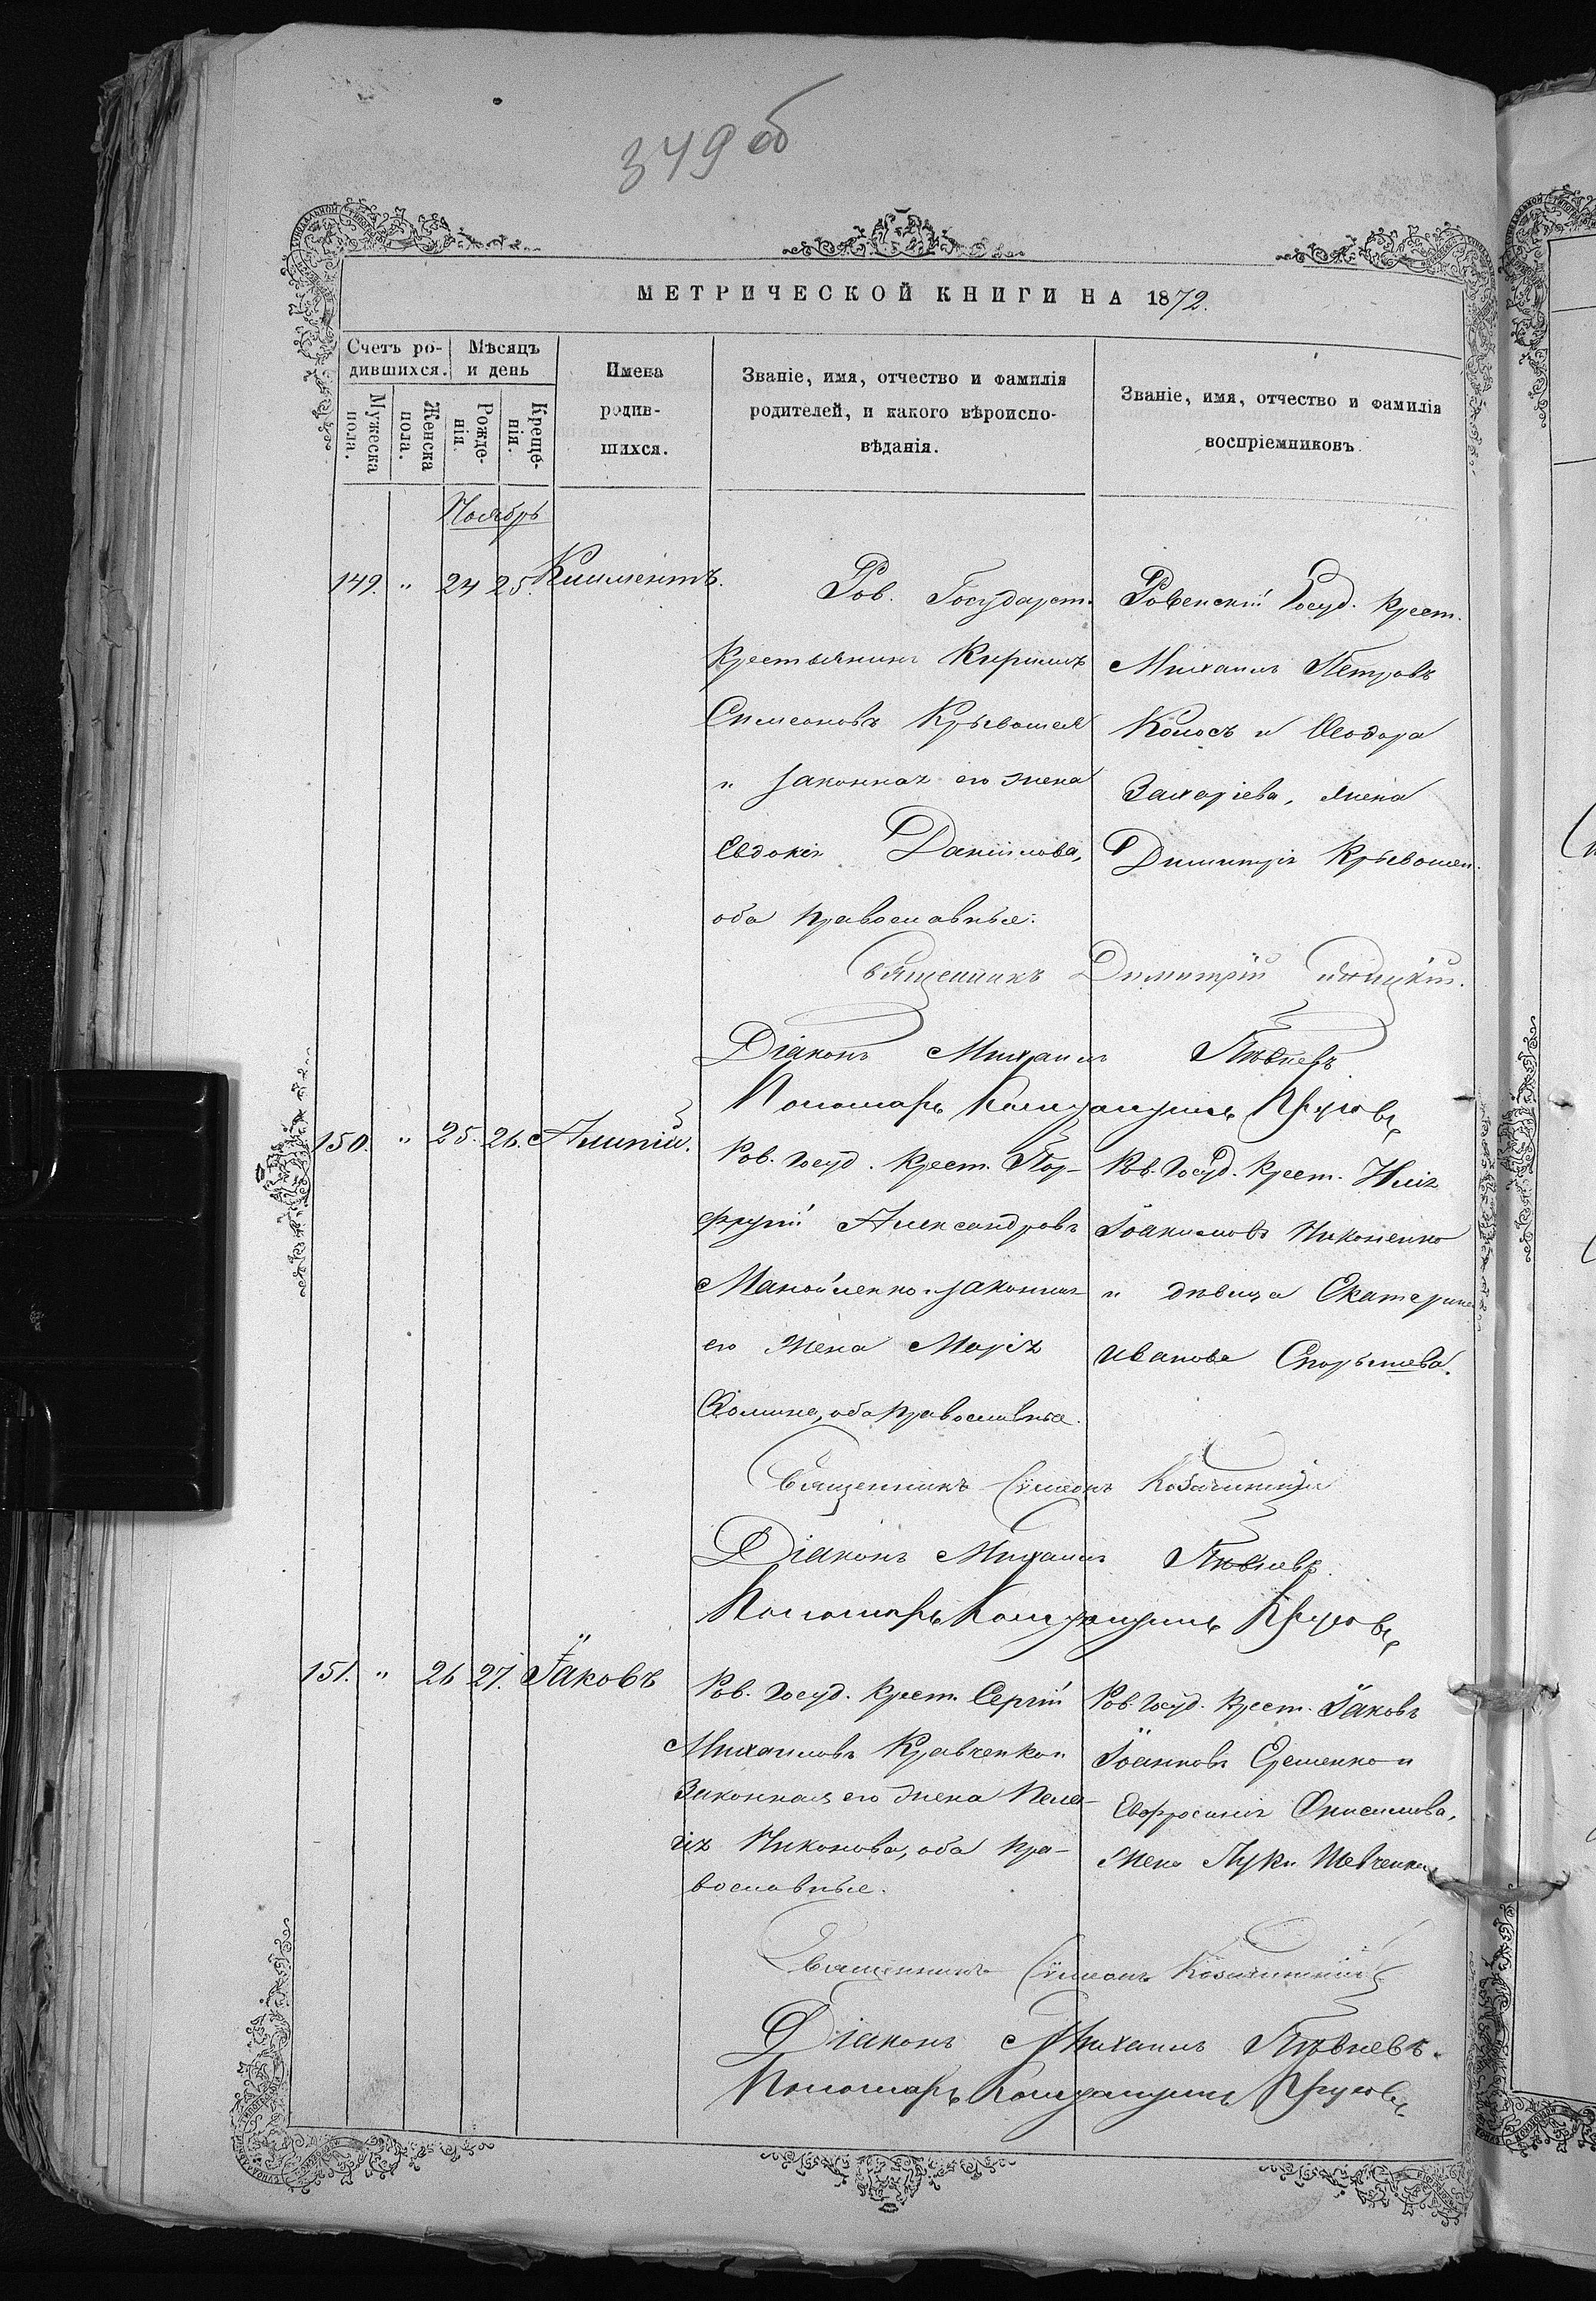 349 об
МЕТРИЧЕСКОЙ КНИГИ НА 1872.
Счетъ родившихся.
Мужеска пола.
Женска пола.
Мѣсяцъ и день
Рожденія.
Крещенія.
Имена родившихся.
Званіе, имя, отчество и фамилія
родителей, и какого вѣроиспо-
вѣданія.
Званіе, имя, отчество и фамилія
воспріемниковъ.
Ноябрь
149. " 24 25. Климентъ.
Ров. Государст.
Крестьянинъ Кирилъ
Симеоновъ Крывошея
и законная его жена
Евдокія Даніилова,
оба православные.
Ровенскій Госуд. Крест.
Михаилъ Петровъ
Колосъ и Ѳеодора
Захаріева, жена
Димитрія Крывошеи.
Священникъ Димитрій
Діаконъ Михаилъ Пѣвневъ
Пономарь
150. " 25. 26. Алипій.
Ров. Госуд. Крест. Пор-
фирій Александровъ
Манойленко и законная
его жена Марія
Ѳомина, оба православные.
Ров. Госуд. Крест. Илія
Іоакимовъ Никоненко
и дѣвица Екатерина
Иванова
Священникъ Сѵмеонъ
Діаконъ Михаилъ Пѣвневъ.
Пономарь
151. " 26 27. Іаковъ
Ров. Госуд. Крест. Сергій
Михаиловъ Кравченко и
Законная его жена Пела-
гія Никонова, оба пра-
вославные.
Ров. Госуд. Крест. Іаковъ
Іоанновъ Ерещенко и
Евфросинія Онисимова,
жена Луки Шевченка
Священникъ Сѵмеонъ
Діаконъ Михаилъ Пѣвневъ.
Пономарь